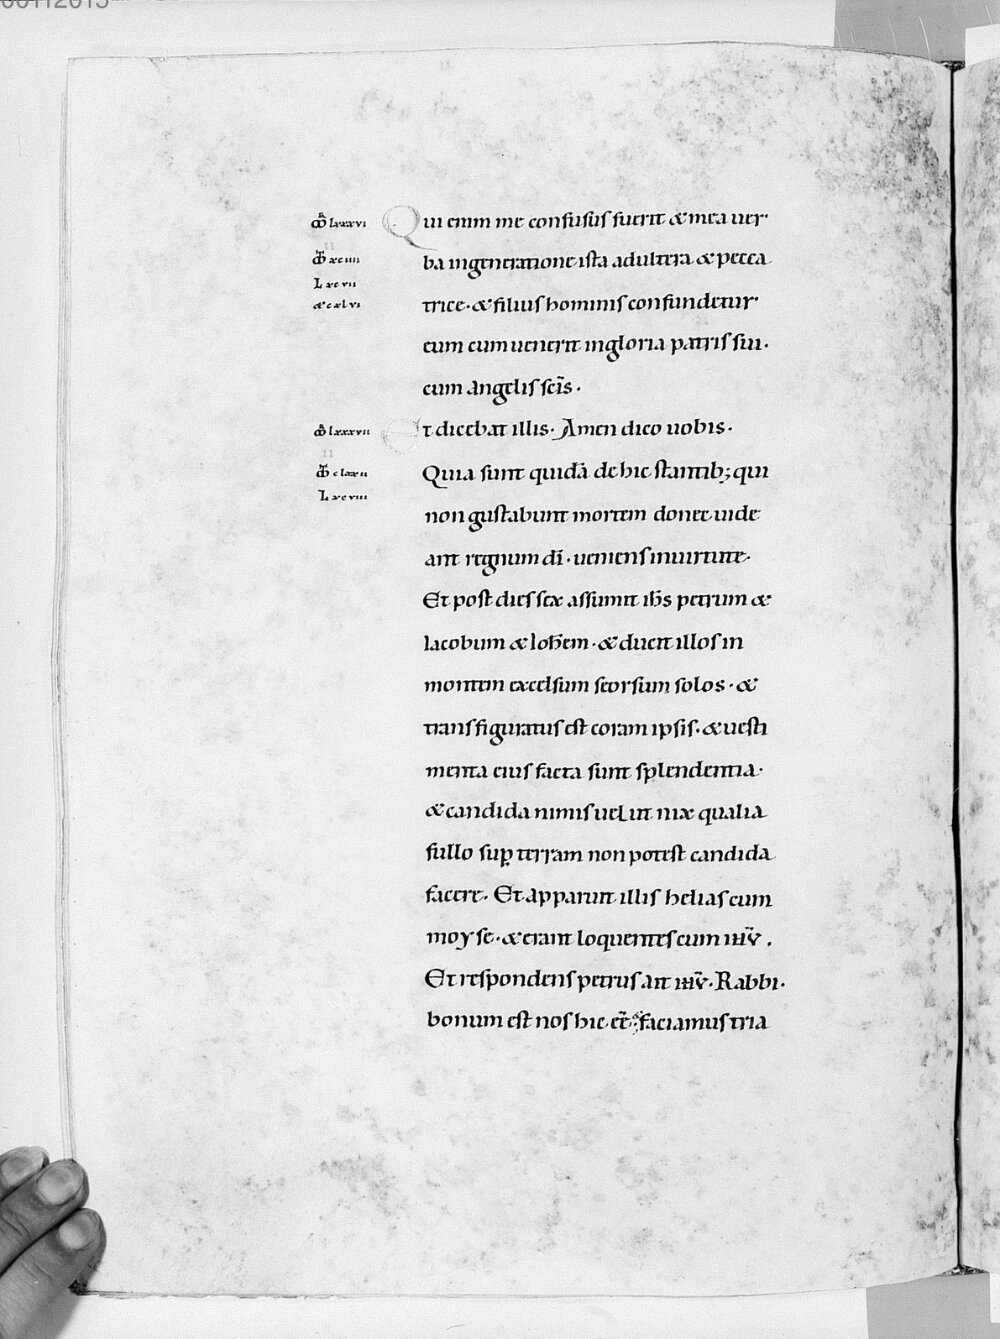 Qui enim me confusus fuerit & mea uer·
ba in generatione ista adultera & pecca
trice· & filius hominis confundetur·
eum cum uenerit in gloria patris sui·
cum angelis sc̄is·
Et dicebat illis· Amen dico uobis·
Quia sunt quidā de hic stantib; qui
non gustabunt mortem donec uide
ant regnum dī· ueniens in uirtute·
Et post dies sex assumit ih̄s petrum &
Iacobum & Ioh̄em· & ducit illos in
montem excelsum seorsum solos· &
transfiguratus est coram ipsis· & uesti
menta eius facta sunt splendentia·
& candida nimis uelut nix qualia
fullo suꝑ terram non potest candida
facere· Et apparuit illis helias cum
moyse· & erant loquentes cum ihū·
Et respondens petrus ait ihū· Rabbi·
bonum est nos hic eē· faciamus tria